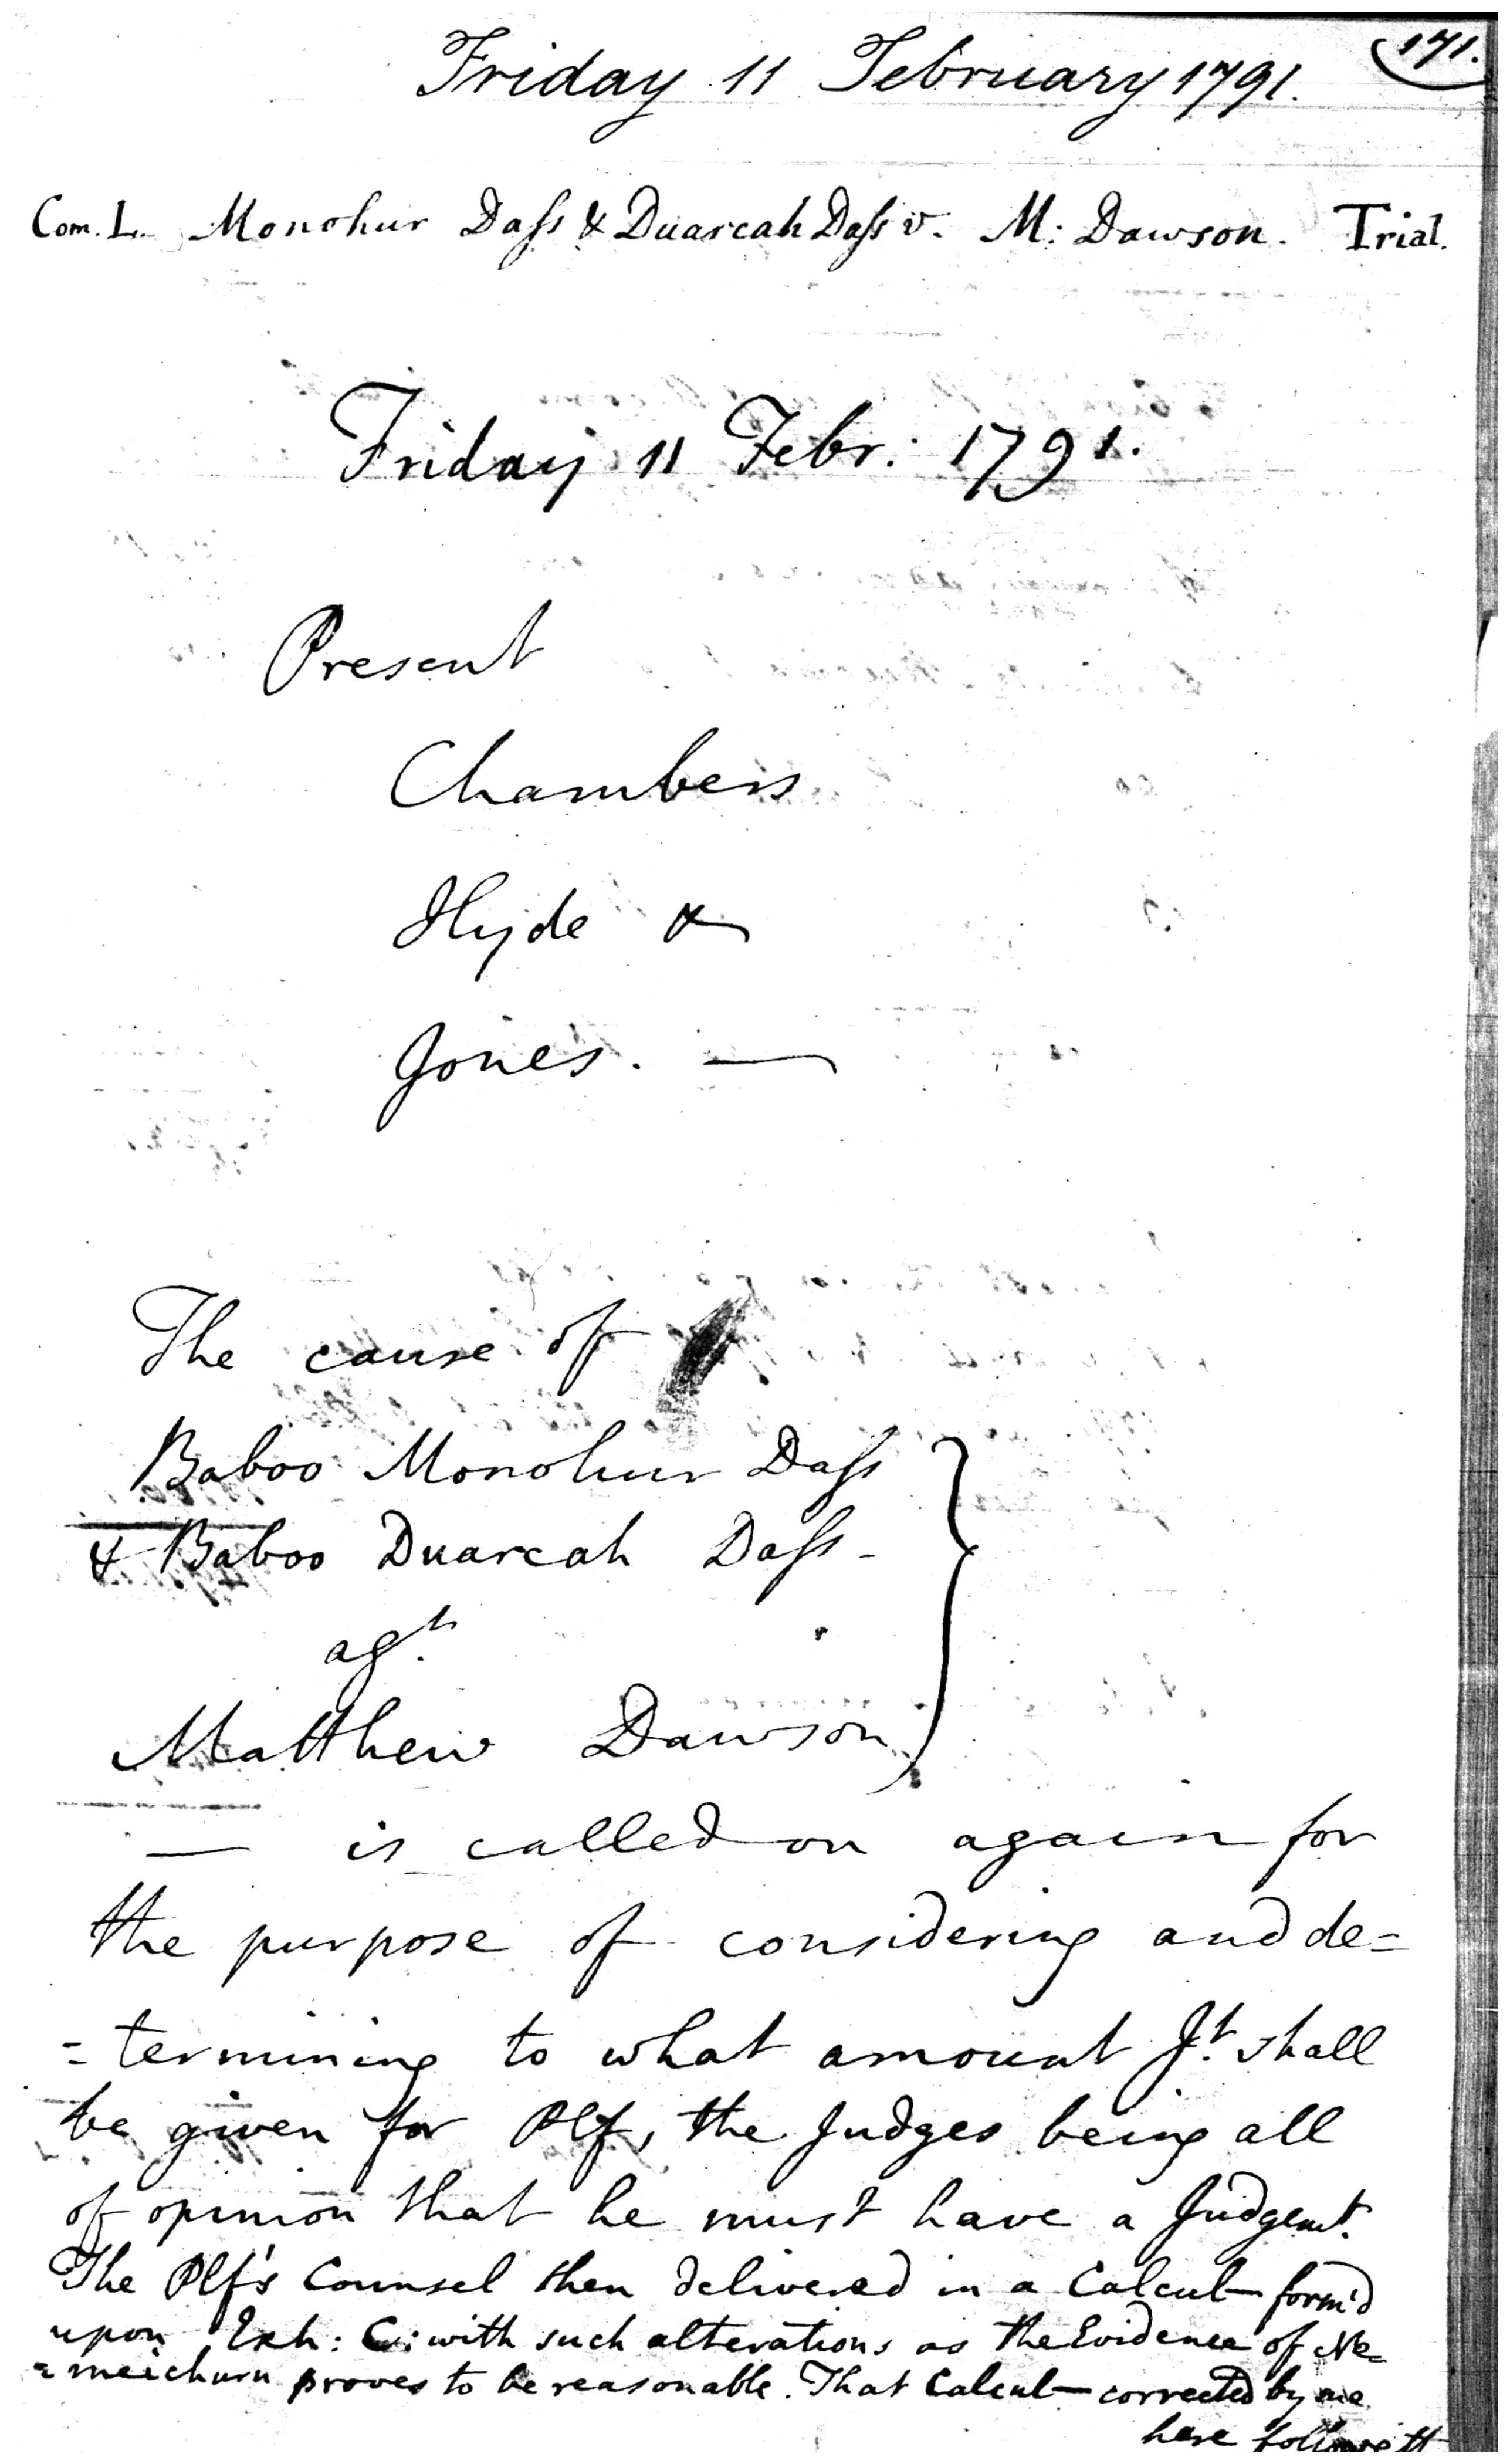 171.
Friday 11 February 1791.
Com. L. Monohur Daſs & Duarcah Daſs v. M: Dawson. Trial.
Friday 11 Febr: 1791.
Present
Chambers
Hyde &
Jones. —
The cause of
Baboo Monohur Daſs
& Baboo Duarcah Daſs -
agt.
Matthew Dawson
— is called on again for
the purpose of considering and de=
=termining to what amount Jt. shall
be given for Plf, the Judges being all
of opinion that he must have a Judgemt.
The Plf's Counsel then delivered in a Calcul— form'd
upon Exh: C: with such alterations as the Evidence of Ne=
=meichurn proves to be reasonable. That Calcul— corrected by me
here followeth